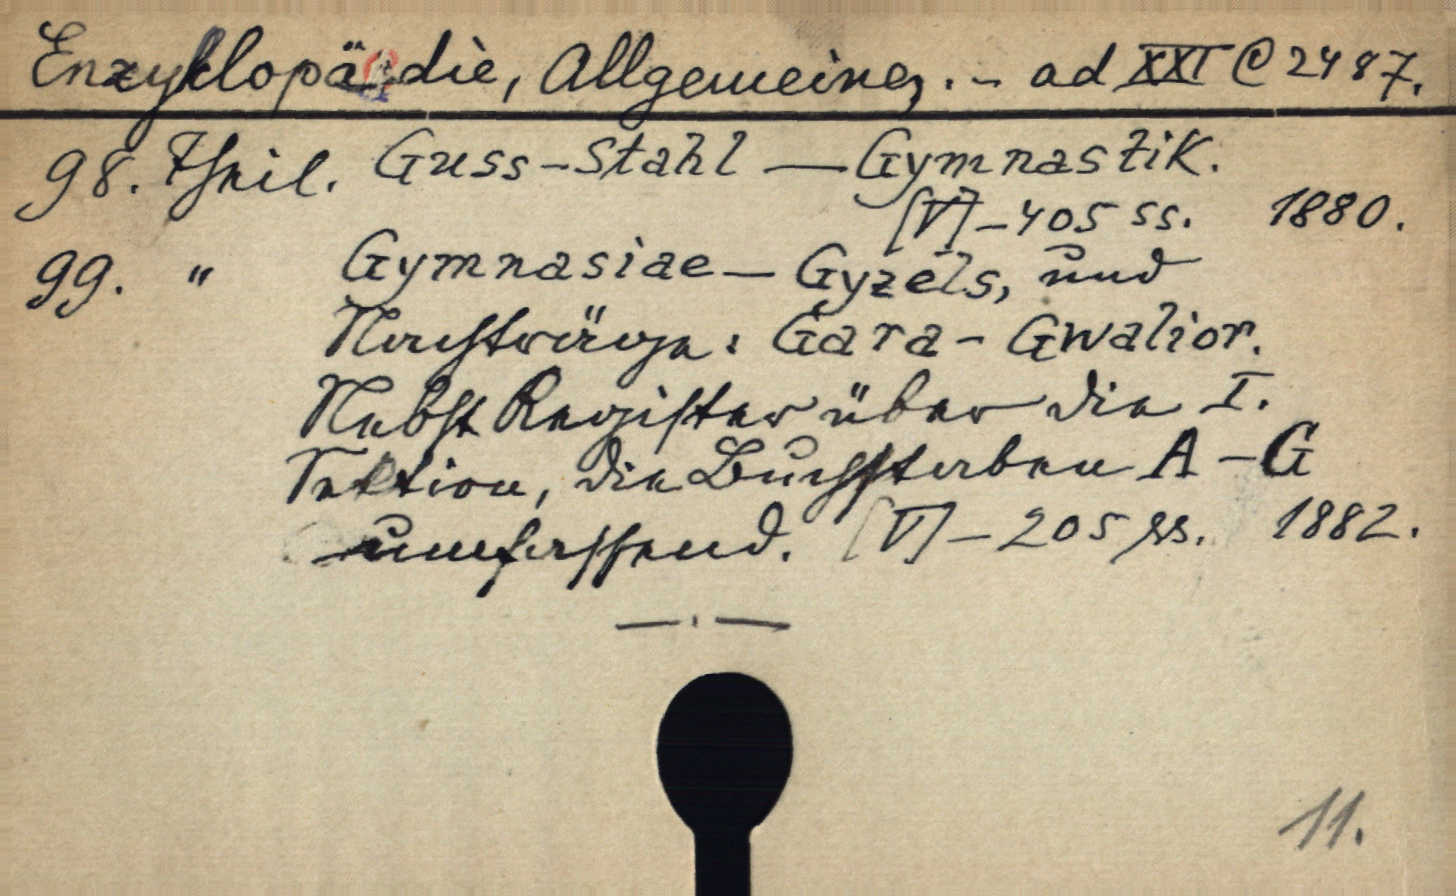 Enzyklopädie, Allgemeine, . - ad XXI C 2487.
98. Theil. Guss-Stahl — Gymnastik.
[V] - 405 ss. 1880.
99. " Gymnasiae - Gyzels, und
Nachträge: Gara - Gwalior.
Nebst Register über die I.
Sektion, die Buchstaben A - G
umfassend. [V] - 205 ss. 1882.
11.